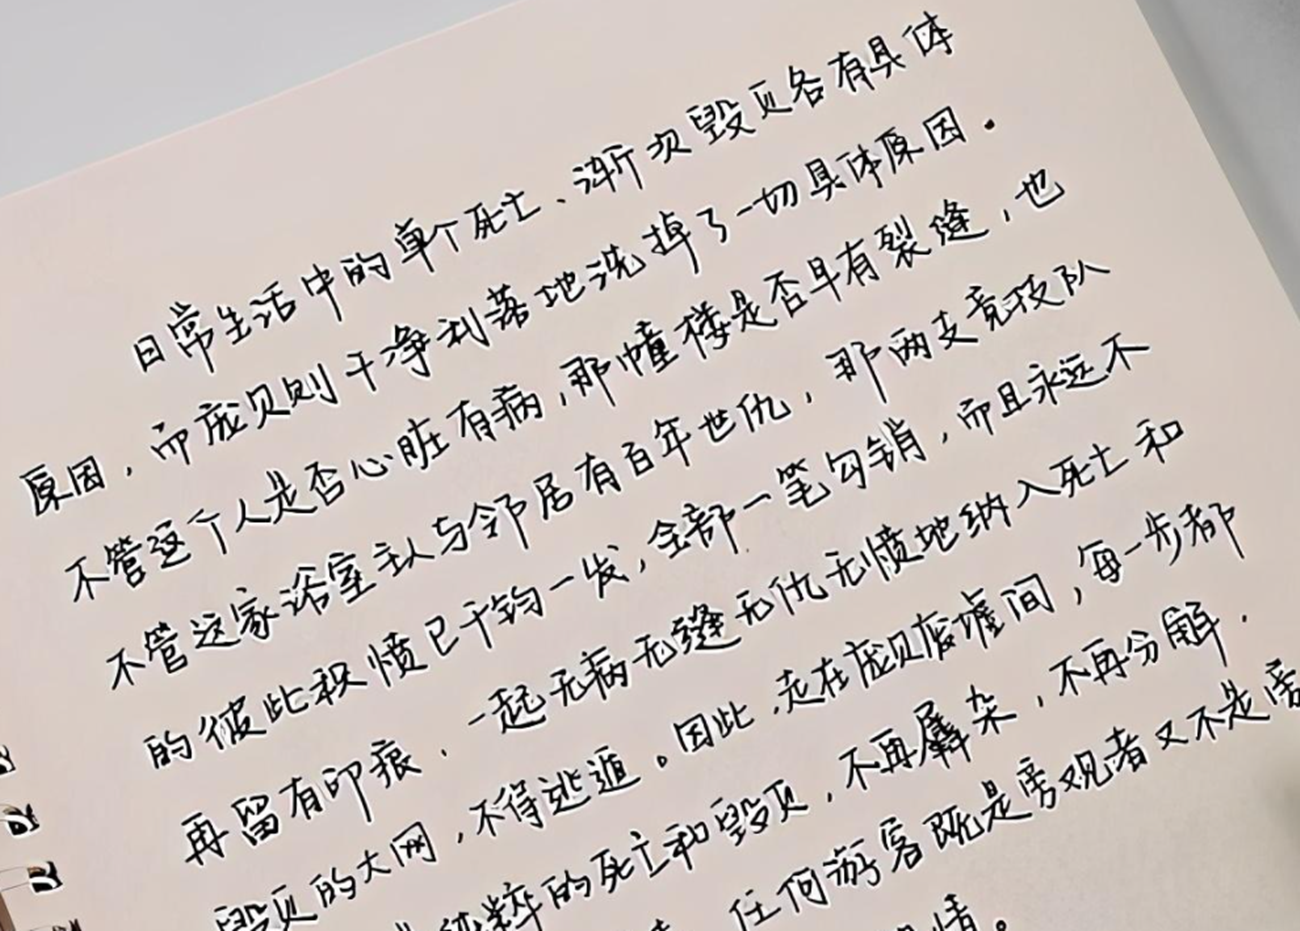 日常生活中的单个死亡、渐次毁灭各有具体
原因,而庞贝则干净利落地洗掉了一切具体原因.
不管这个人是否心脏有病,那幢楼是否早有裂缝,也
不管这家浴室主人与邻居有百年世仇,那两支竞技队
的彼此积愤已千钧一发,全部一笔勾销,而且永远不
再留有印痕.一起无病无缝无仇无愤地纳入死亡和
毁灭的大网,不得逃遁。因此,走在庞贝废墟间,每一步都
纯粹的死亡和毁灭,不再羼杂,不再分解.
任何游客既是旁观者又不是旁
情。